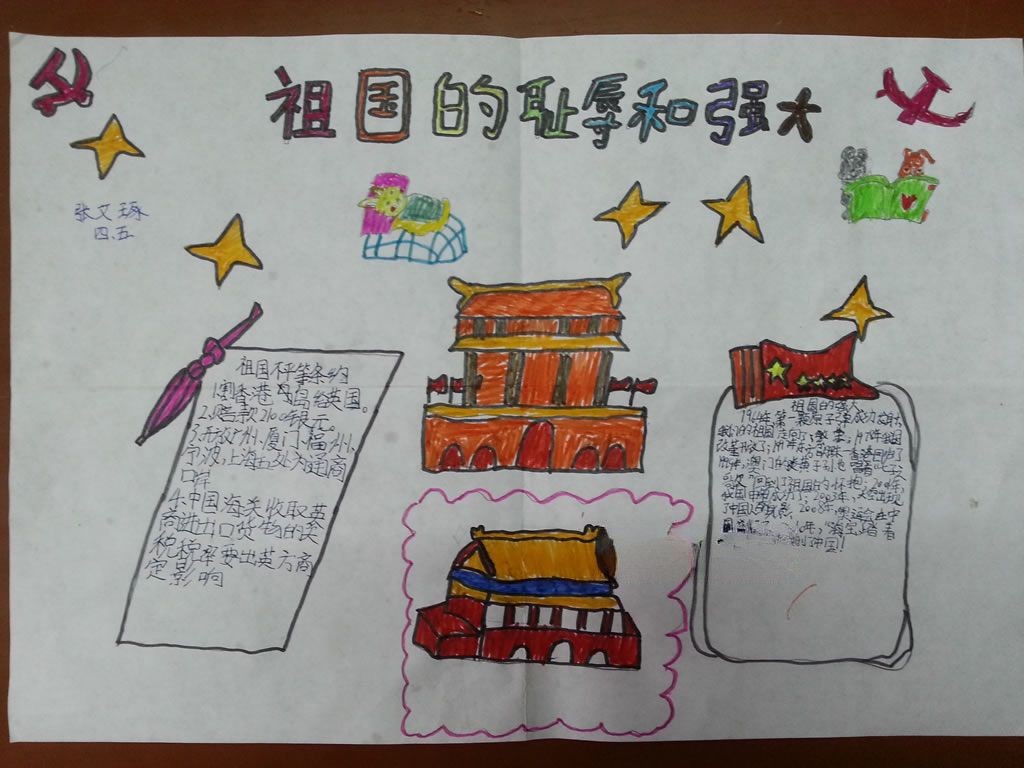 祖国的耻辱和强大
张文琢
四.五
祖国不平等条约
1.割香港岛给英国。
2.赔款2100银元。
3.开放广州,厦门,福州,
宁波,上海五处为通商
口岸
4.中国海关收取英
商进出口货物的关
税税率要出英方商
定影响
祖国的强大
1964年第一颗原子弹成功发射,
我们的祖国走向了繁荣,1978年祖国
改革开放了,1997年东方明珠--香港回归了
1999年,澳门
回到了祖国的怀抱。2001年
我国申奥成功了,2003年,太空出现
了中国人的身影。2008年,奥运会在中